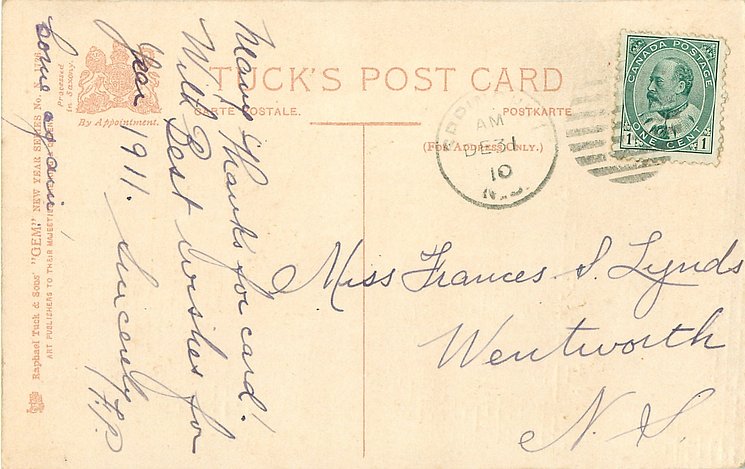 TUCK'S POST CARD
CARTE POSTALE.
POSTKARTE
(FOR ADDRESS ONLY.)
Processed
in Saxony.
By Appointment.
CANADA POSTAGE
ONE CENT
1 1
AM
DE 31
10
N.S.
Many Thanks for card.
With Best wishes for
Year 1911. Sincerely F.P.
Come again.
Miss Frances S. Lynds
Wentworth
N. S.
Raphael Tuck & Sons' "GEM" NEW YEAR SERIES No. N.
ART PUBLISHERS TO THEIR MAJESTIES